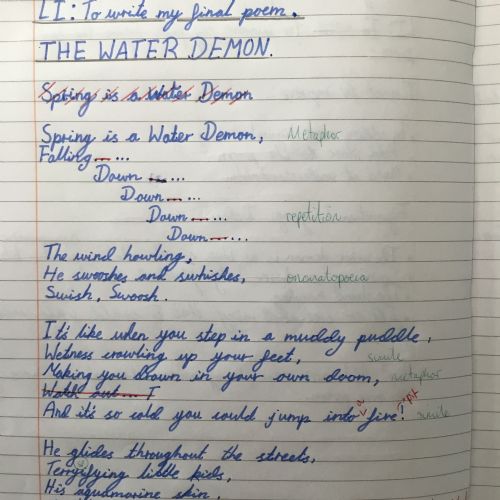 LI: To write my final poem.
THE WATER DEMON.
Spring is a Water Demon
Spring is a Water Demon, Metaphor
Falling ...
Down ...
Down ...
Down ... repetition
Down ...
The wind howling,
He swooshes and swhishes, onomatopoeia
Swish, Swoosh.
It's like when you step in a muddy puddle,
Wetness crawling up your feet, simile
Making you drown in your own doom, metaphor
Watch out... I
And it's so cold you could jump into a fire! simile
He glides throughout the streets,
Terryifying little kids,
His aquamarine skin,